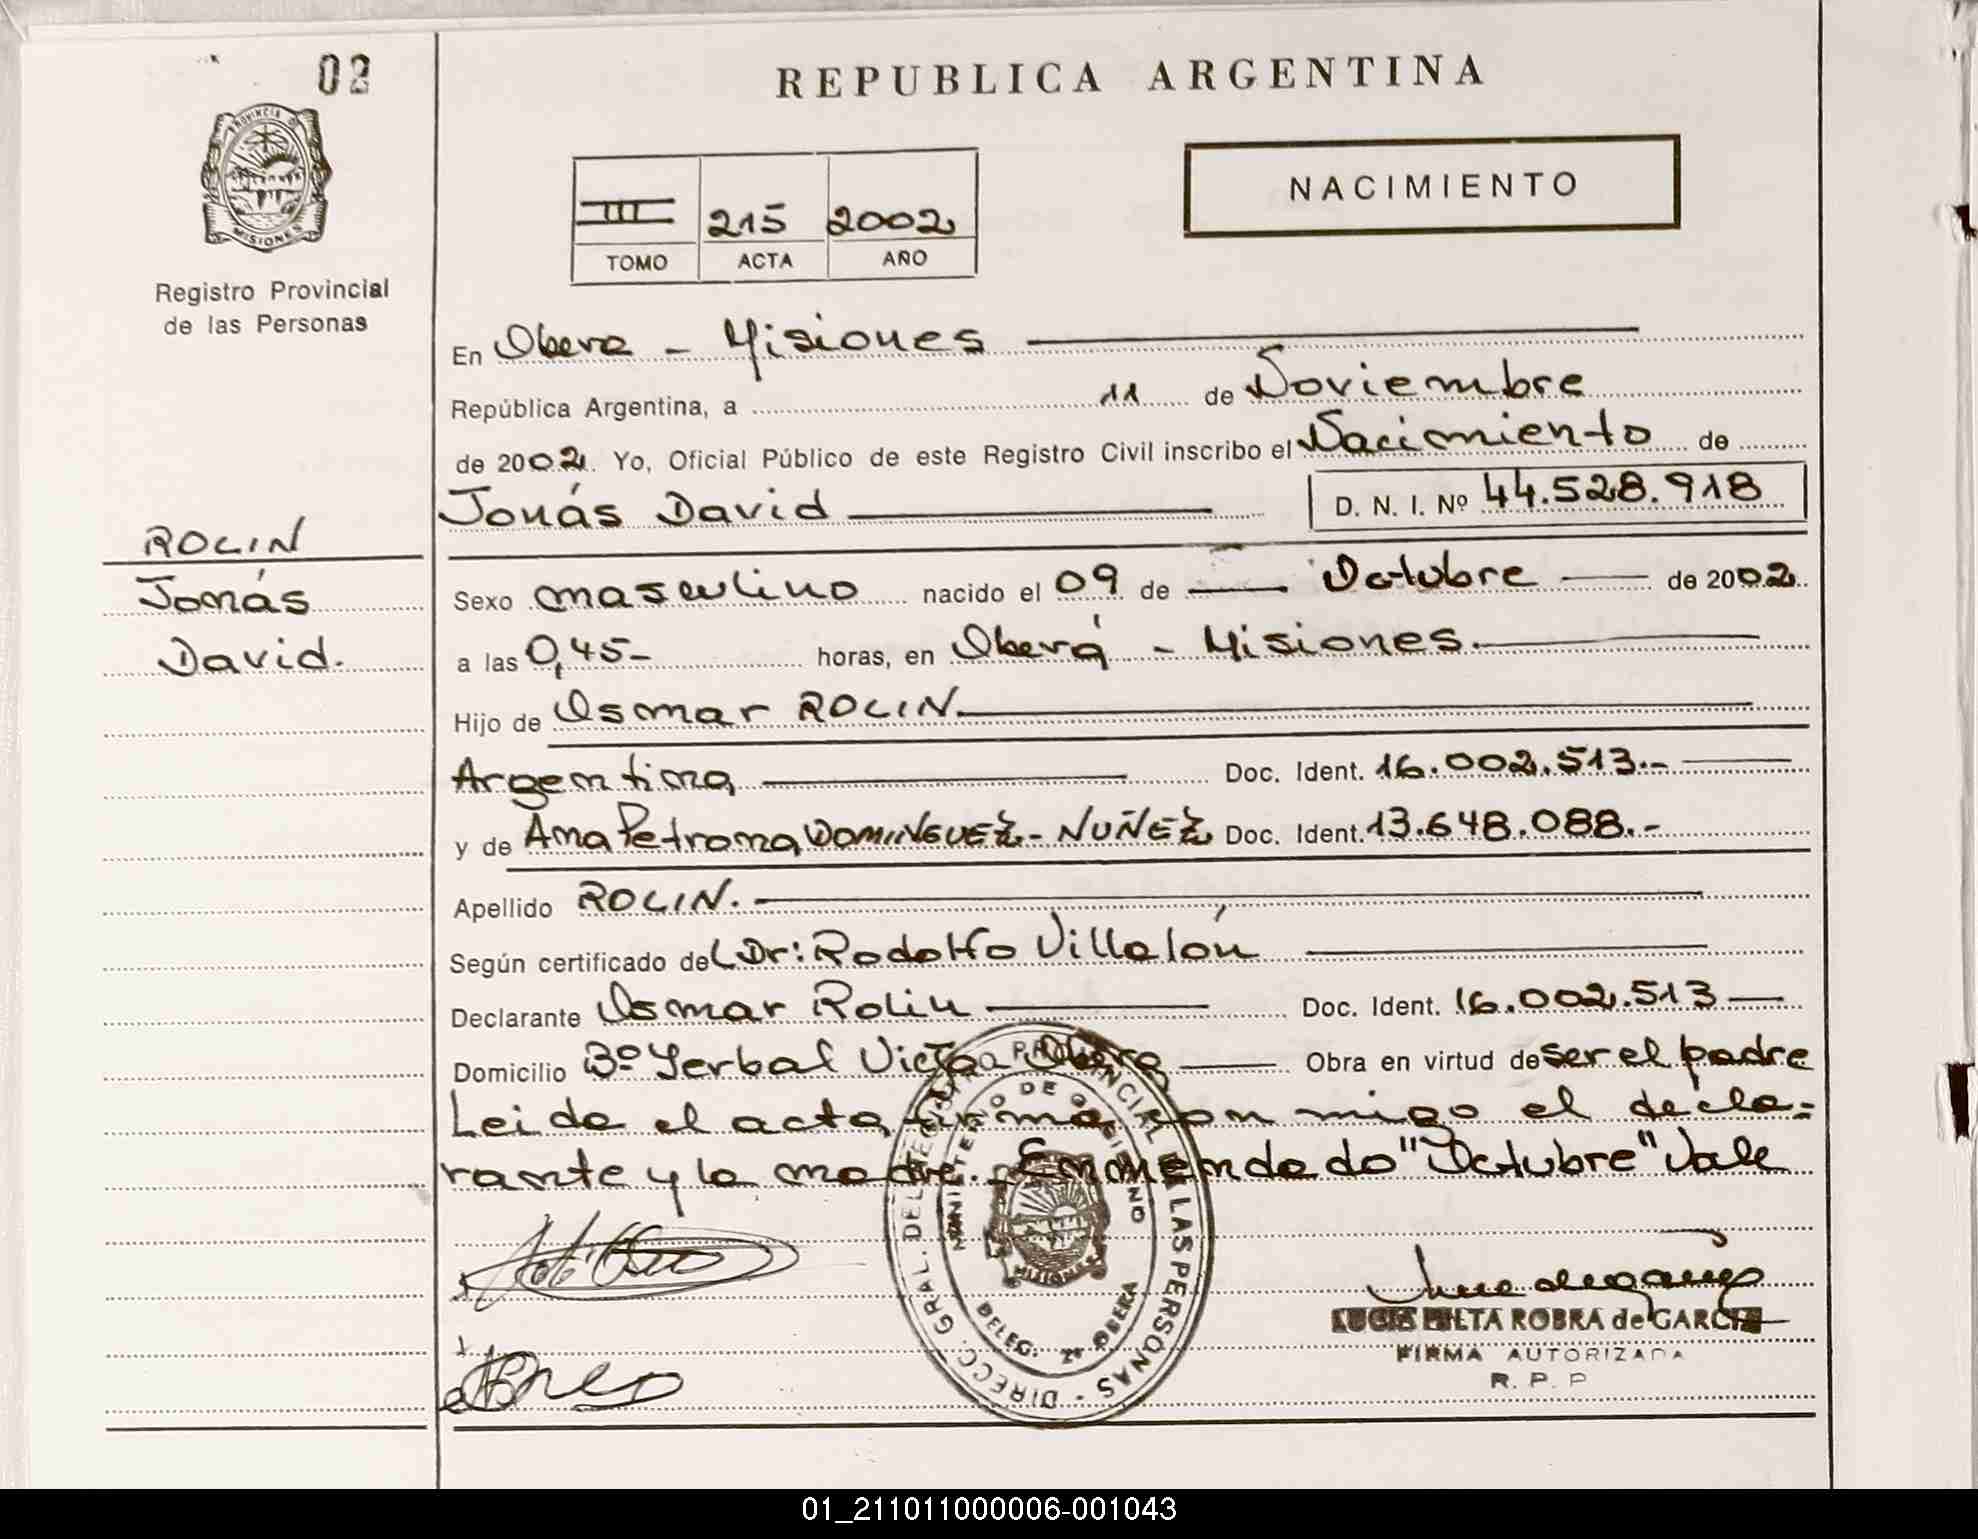 02
REPUBLICA ARGENTINA
NACIMIENTO
III 215 2002
TOMO ACTA AÑO
PROVINCIA DE
MISIONES
Registro Provincial
de las Personas
En Obera - Misiones
República Argentina, a 11 de Noviembre
de 2002. Yo, Oficial Público de este Registro Civil inscribo el Nacimiento de
Jonás David D. N. I. Nº 44.528.918
ROLIN
Jonás
David.
Sexo masculino nacido el 09 de Octubre de 2002
a las 0,45- horas, en Oberá - Misiones.
Hijo de Osmar ROLIN
Argentina Doc. Ident. 16.002.513.-
y de Ana Petrona DOMINGUEZ - NUÑEZ Doc. Ident. 13.648.088.-
Apellido ROLIN.
Según certificado del Dr: Rodolfo Villalón
Declarante Osmar Rolin Doc. Ident. 16.002.513
Domicilio Bº Yerbal Viejo Obera Obra en virtud de ser el padre
Leida el acta, firma con migo el decla=
rante y la madre. Enmendado "Octubre" Vale
DIRECC. GRAL. DEL REGISTRO PROVINCIAL DE LAS PERSONAS -
MINISTERIO DE GOBIERNO
MISIONES
DELEG. 2ª OBERA
LUCIA ROBRA de GARCIA
FIRMA AUTORIZADA
R. P. P
01_211011000006-001043